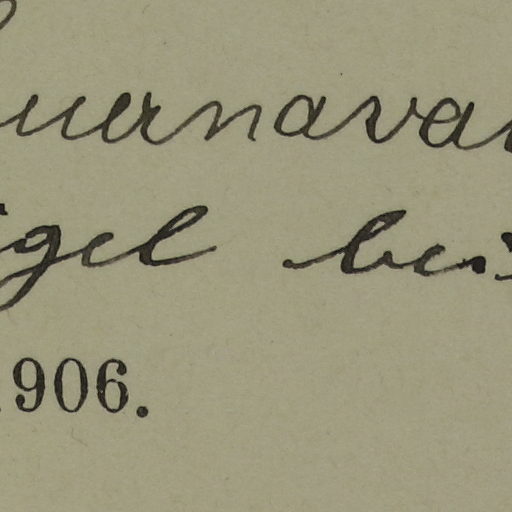 uernava
igel bei
1906.